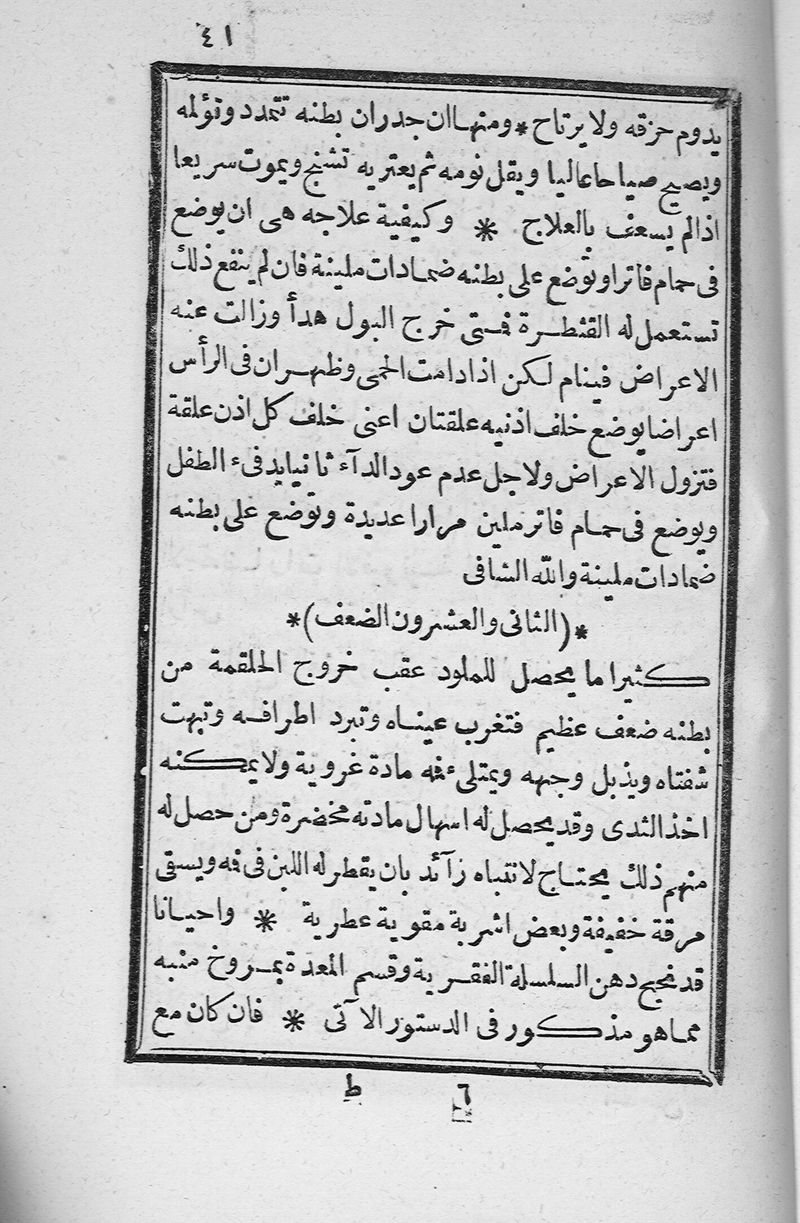 ٤١
يدوم حزقه ولا يرتاح * ومنها ان جدران بطنه تتمدد وتؤلمه
ويصيح صياحا عاليا ويقل نومه ثم يعتريه تشنج ويموت سريعا
اذالم يسعف بالعلاج * وكيفية علاجه هى ان يوضع
فى حمام فاتر اوتوضع على بطنه ضمادات ملينة فان لم ينفع ذلك
تستعمل له القثطرة فمتى خرج البول هدأ وزالت عنه
الاعراض فينام لكن اذا دامت الحمى وظهر ان فى الرأس
اعراضا يوضع خلف اذنيه علقتان اعنى خلف كل اذن علقة
فتزول الاعراض ولاجل عدم عود الدآء ثانيا يدفىء الطفل
ويوضع فى حمام فاتر ملين مرارا عديدة وتوضع على بطنه
ضمادات ملينة والله الشافى
*(الثانى والعشرون الضعف)*
كثيرا ما يحصل للملود عقب خروج الحلقمة من
بطنه ضعف عظيم فتغرب عيناه وتبرد اطرافه وتبهت
شفتاه ويذبل وجهه ويمتلىء فمه مادة غروية ولا يمكنه
اخذ الثدى وقد يحصل له اسهال مادته مخضرة ومن حصل له
منهم ذلك يحتاج لانتباه زآئد بان يقطر له اللبن فى فمه ويسقى
مرقة خفيفة وبعض اشربة مقوية عطرية * واحيانا
قد نجح دهن السلسلة الفقرية وقسم المعدة بمروخ منبه
مما هو مذكور فى الدستور الآتى * فان كان مع
٦ ط